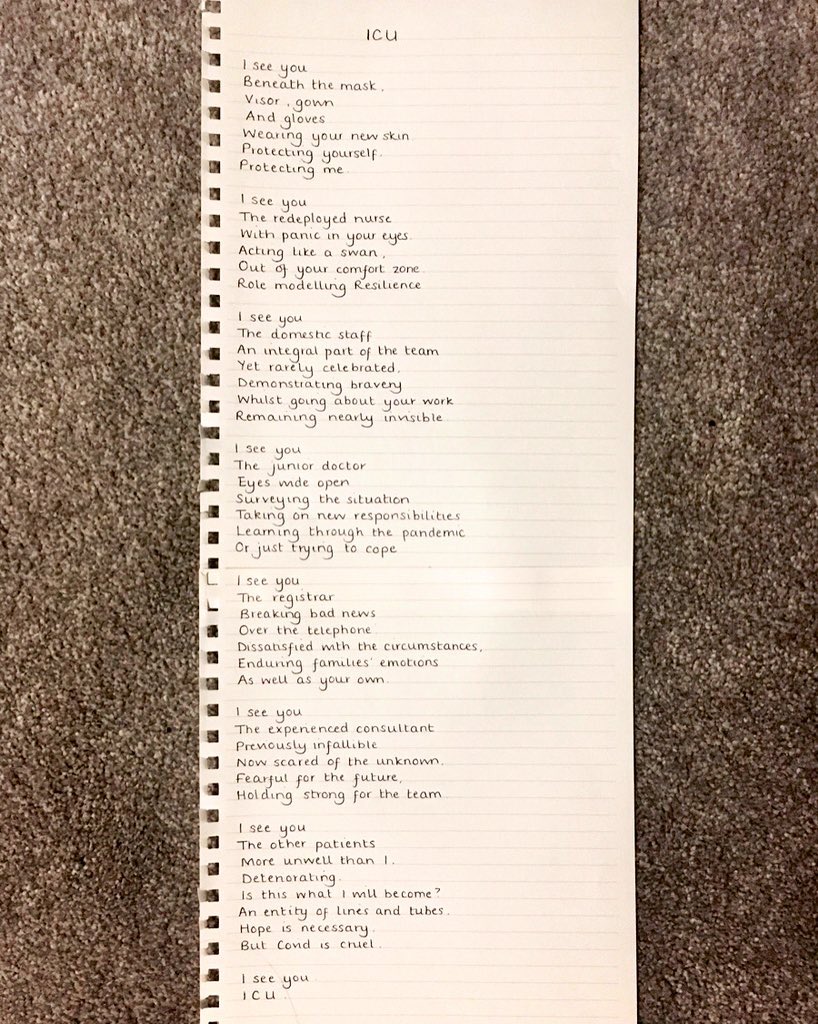 ICU
I see you
Beneath the mask,
Visor, gown
And gloves
Wearing your new skin
Protecting yourself.
Protecting me.
I see you
The redeployed nurse
With panic in your eyes.
Acting like a swan,
Out of your comfort zone.
Role modelling Resilience
I see you
The domestic staff
An integral part of the team
Yet rarely celebrated,
Demonstrating bravery
Whilst going about your work
Remaining nearly invisible
I see you
The junior doctor
Eyes wide open
Surveying the situation
Taking on new responsibilities
Learning through the pandemic
Or just trying to cope
I see you
The registrar
Breaking bad news
Over the telephone
Dissatisfied with the circumstances,
Enduring families' emotions
As well as your own.
I see you
The experienced consultant
Previously infallible
Now scared of the unknown.
Fearful for the future,
Holding strong for the team
I see you
The other patients
More unwell than I.
Deteriorating.
Is this what I will become?
An entity of lines and tubes.
Hope is necessary.
But Covid is cruel.
I see you
ICU.